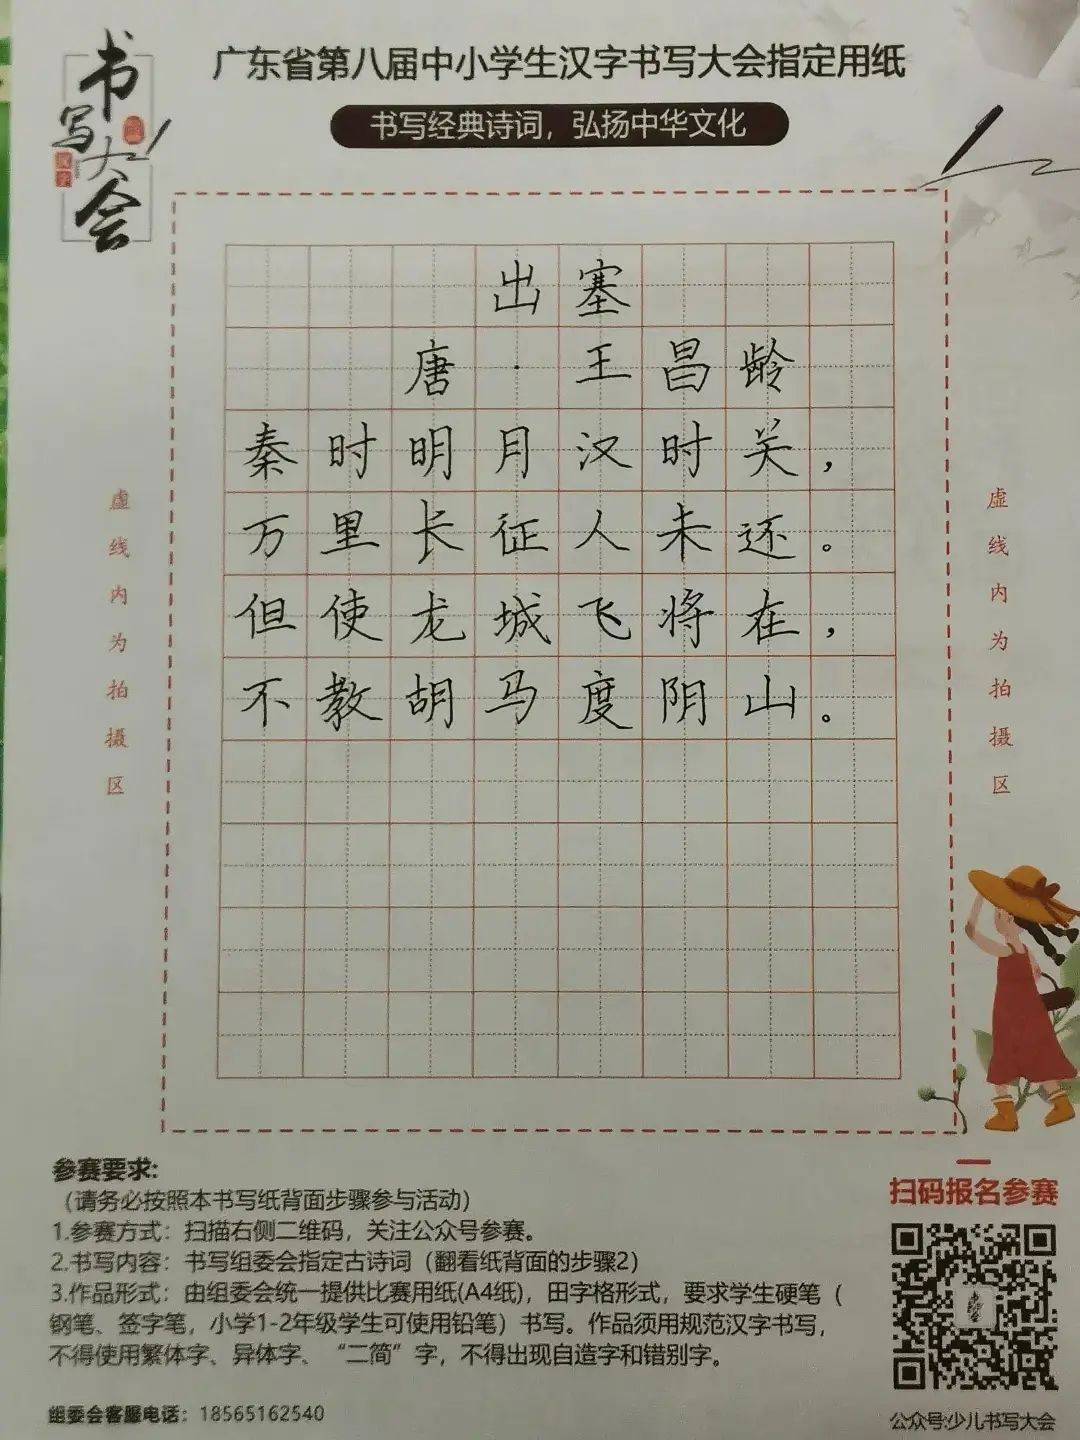 书写大会
广东省第八届中小学生汉字书写大会指定用纸
书写经典诗词，弘扬中华文化
出塞
唐·王昌龄
秦时明月汉时关，
万里长征人未还。
但使龙城飞将在，
不教胡马度阴山。
虚线内为拍摄区
虚线内为拍摄区
参赛要求:
（请务必按照本书写纸背面步骤参与活动）
1.参赛方式：扫描右侧二维码，关注公众号参赛。
2.书写内容：书写组委会指定古诗词（翻看纸背面的步骤2）
3.作品形式：由组委会统一提供比赛用纸(A4纸)，田字格形式，要求学生硬笔（
钢笔、签字笔，小学1-2年级学生可使用铅笔）书写。作品须用规范汉字书写，
不得使用繁体字、异体字、“二简”字，不得出现自造字和错别字。
组委会客服电话：18565162540
扫码报名参赛
公众号:少儿书写大会